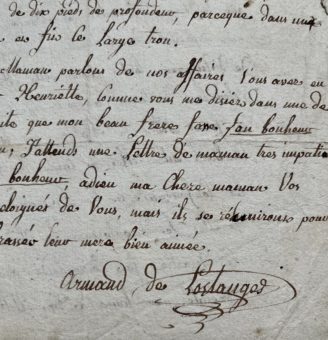 de dix pieds de profondeur, parceque dans une
en fis le large trou.
Maman parlons de nos affaires vous avez eu
Henriette, comme vous me disiez dans une de
que mon beau frere fasse son bonheur
J'attends une Lettre de maman tres impatie
bonheur, adieu ma Chere maman Vos
eloignés de Vous, mais ils se réunirons pour
rassée leur mere bien aimée.
Armand de Lostanges